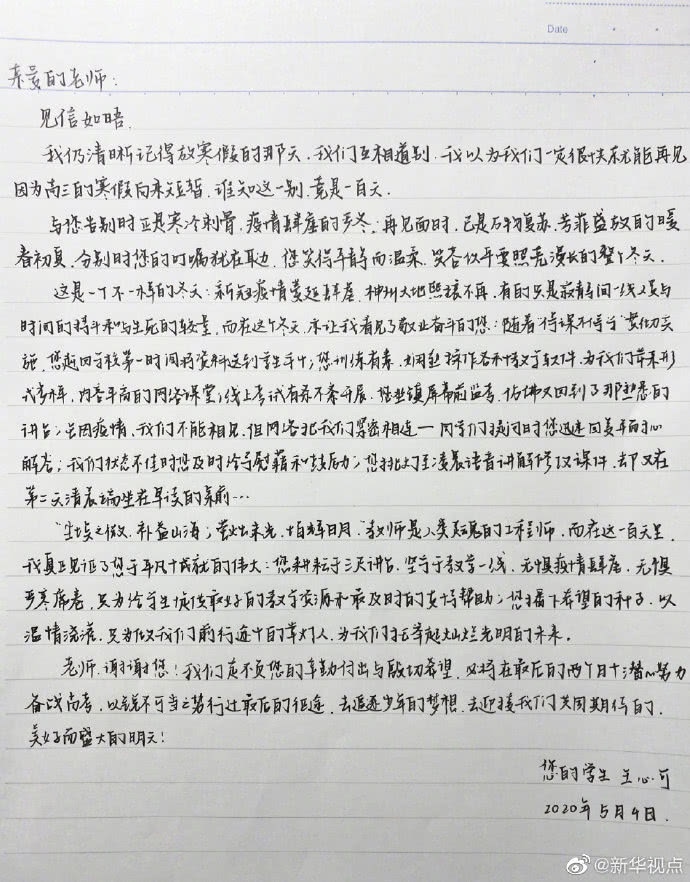 Date
亲爱的老师:
见信如晤.
我仍清晰记得放寒假的那天,我们互相道别,我以为我们一定很快就能再见
因为高三的寒假向来短暂,谁知这一别,竟是一百天.
与您告别时正是寒冷刺骨,疫情肆虐的严冬,再见面时,已是万物复苏,芳菲盛放的暖
春初夏,分别时您的叮嘱犹在耳边,您笑得平静而温柔,笑容似乎要照亮漫长的整个冬天.
这是一个不一样的冬天:新冠疫情蔓延肆虐,神州大地熙攘不再,有的只是寂静间一线人员与
时间的持平和与生死的较量,而在这个冬天,亦让我看见了敬业奋斗的您:随着"停课不停学"贯彻实
施,您赶回学校第一时间将资料送到学生手中;您训练有素,娴熟操作各种教学软件,为我们带来形
式多样,内容丰富的网络课堂;线上考试有条不紊开展,您坐镇屏幕前监考,仿佛又回到了那熟悉的
讲台;虽因疫情,我们不能相见,但网络把我们紧密相连——同学们提问时您迅速回复耐心
解答;我们状态不佳时您及时给予慰藉和鼓励;您挑灯至凌晨语音讲解修改课件,却又在
第二天清晨端坐在早读的桌前…
"尘埃之微,补益山海;萤烛末光,增辉日月."教师是人类灵魂的工程师,而在这一百天里,
我真正见证了您于平凡中成就的伟大:您耕耘于三尺讲台,坚守于教学一线,无惧疫情肆虐,无惧
严寒席卷,只为给学生提供最好的教学资源和最及时的真情帮助;您播下希望的种子,以
温情浇灌,只为做我们前行途中的掌灯人,为我们托举起灿烂光明的未来.
老师,谢谢您!我们定不负您的辛勤付出与殷切希望,必将在最后的两个月中潜心努力
备战高考,以锐不可当之势行过最后的征途,去追逐少年的梦想,去迎接我们共同期待的,
美好而盛大的明天!
您的学生 王心可
2020年5月4日.
@新华视点